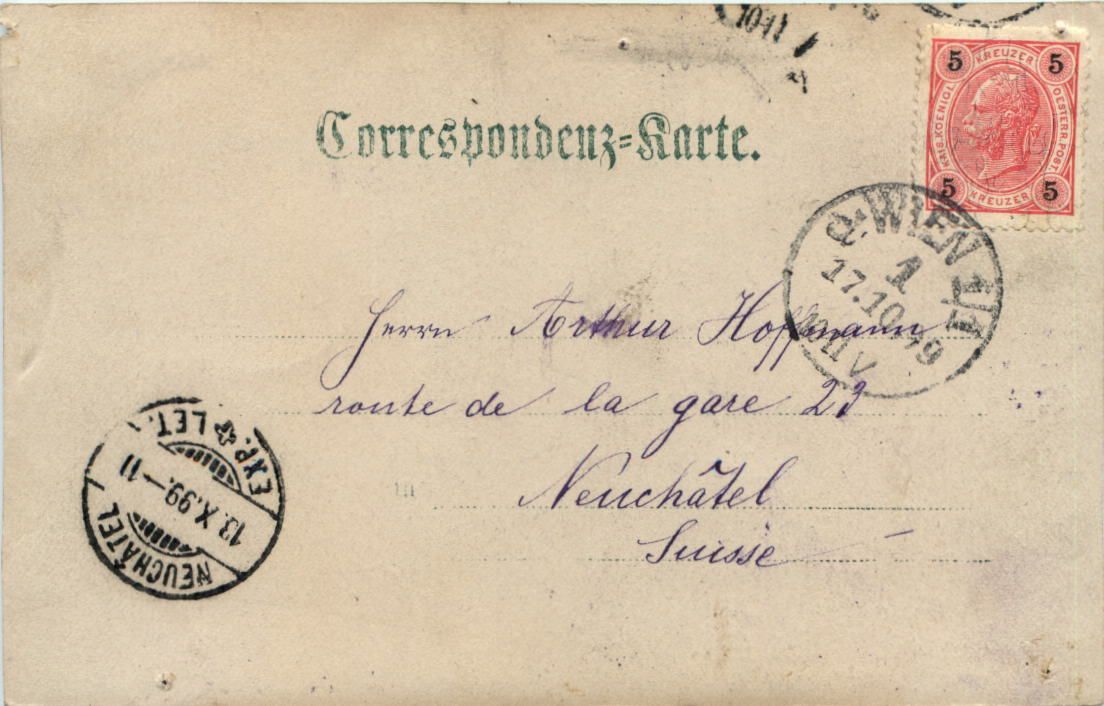 10-11
Correspondenz=Karte.
5 KREUZER 5
KAIS. KOENIGL. OESTERR. POST.
5 KREUZER 5
WIEN 1/1
1
17.10.99
10-11 V
Herrn Arthur Hoffmann
route de la gare 23
Neuchâtel
Suisse
NEUCHÂTEL
13.X.99.—11
EXP. LET.